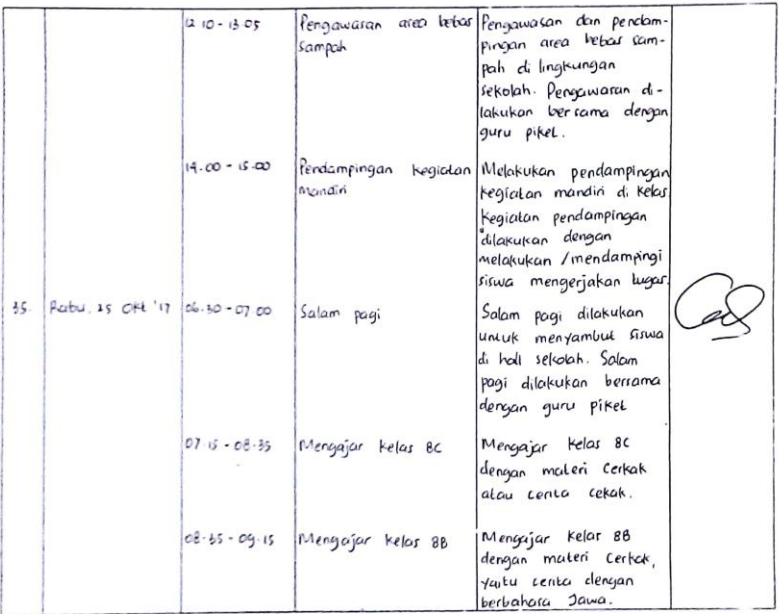 12.10 - 13.05
Pengawasan area bebas
sampah
Pengawasan dan pendam-
pingan area bebas sam-
pah di lingkungan
sekolah. Pengawasan di-
lakukan bersama dengan
guru piket.
14.00 - 15.00
Pendampingan kegiatan
mandiri
Melakukan pendampingan
kegiatan mandiri di kelas
kegiatan pendampingan
dilakukan dengan
melakukan /mendampingi
siswa mengerjakan tugas.
35.
Rabu, 25 Okt '17
06.30 - 07.00
Salam pagi
Salam pagi dilakukan
untuk menyambut siswa
di hall sekolah. Salam
pagi dilakukan bersama
dengan guru piket
07.15 - 08.35
Mengajar kelas 8C
Mengajar kelas 8C
dengan materi Cerkak
atau cerita cekak.
08.35 - 09.15
Mengajar kelas 8B
Mengajar kelas 8B
dengan materi Cerkak,
yaitu cerita dengan
berbahasa Jawa.